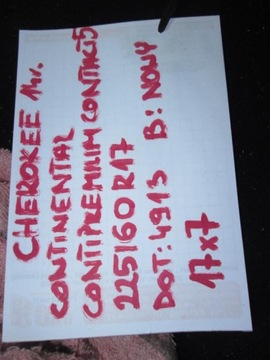 CHEROKEE 1HV.
CONTINENTAL
CONTIPREMIUMCONTACT5
225/60R17
DOT:4913 B:NOWY
17x7